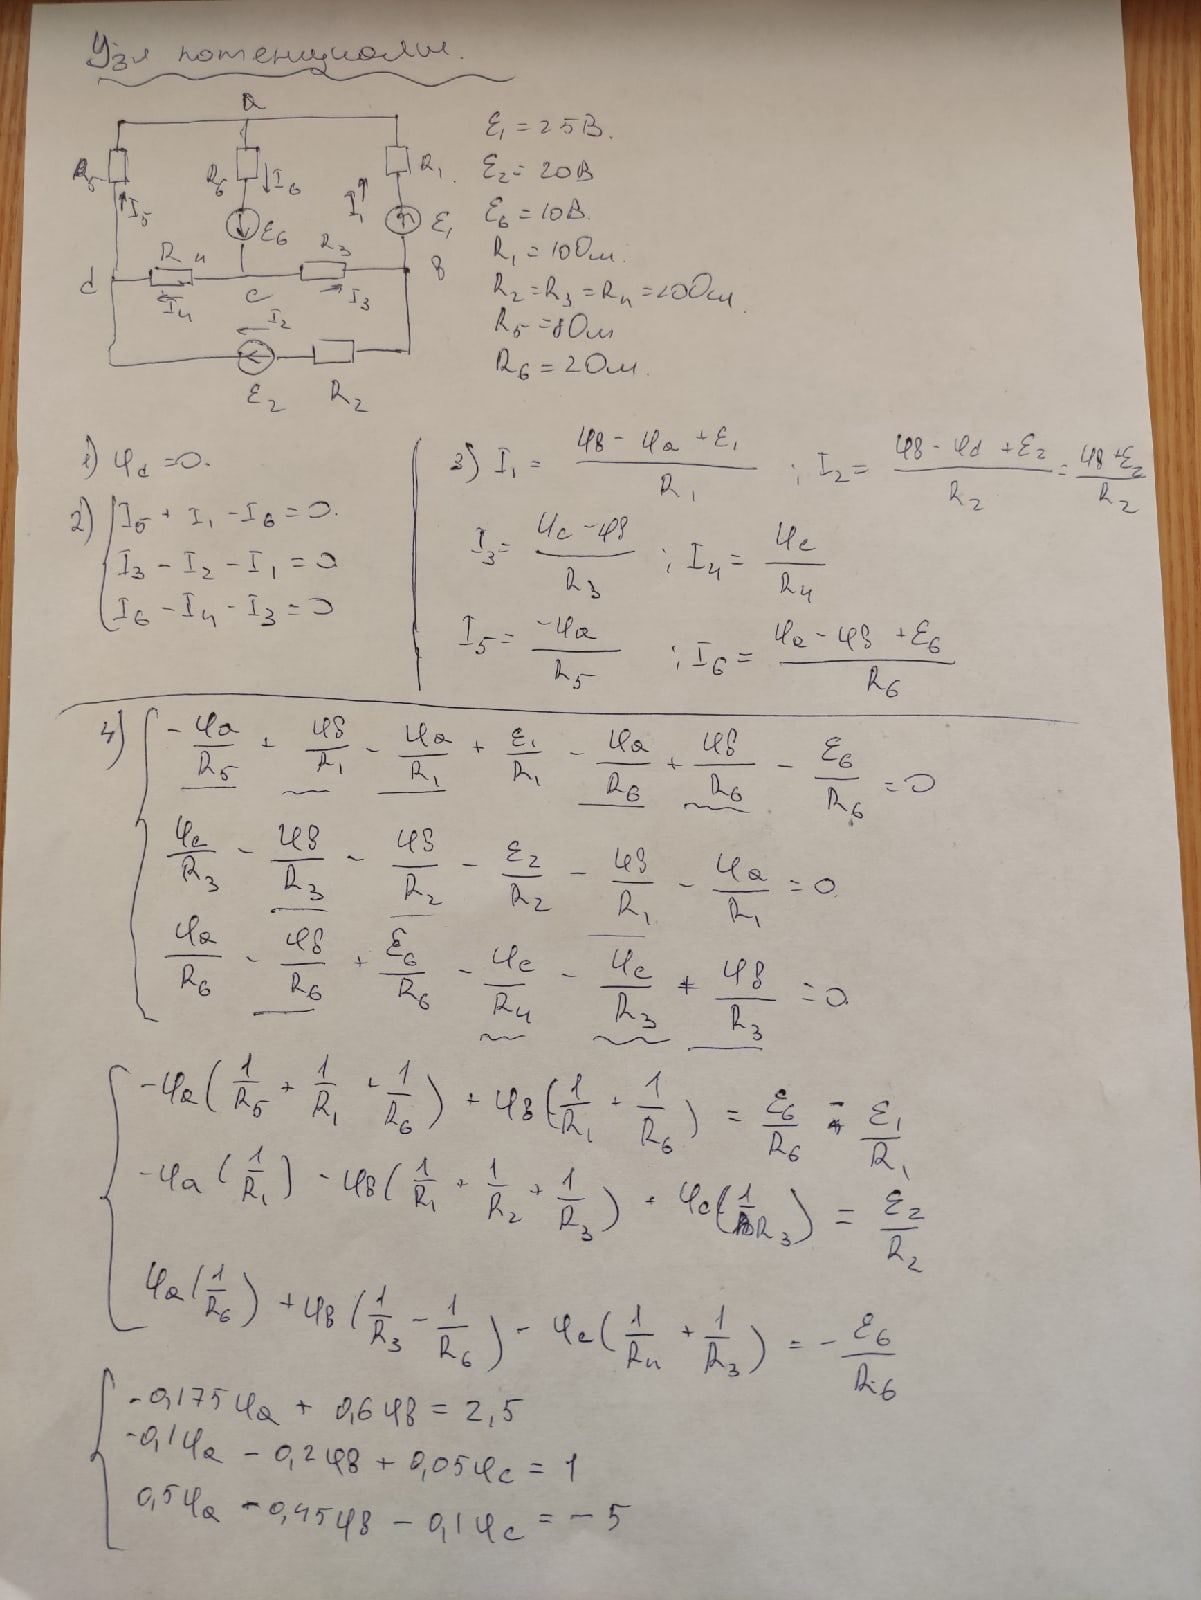 Узл потенциалы.
a
R5 I5 R6 I6 I1 R1
E6 E1
d R4 I4 c R3 I3 в
I2
E2 R2
ε1 = 25В.
ε2 = 20В
ε6 = 10В.
R1 = 10Ом.
R2 = R3 = R4 = 20Ом.
R5 = 80м
R6 = 2Ом.
1) φd = 0.
2) I5 + I1 - I6 = 0.
I3 - I2 - I1 = 0
I6 - I4 - I3 = 0
3) I1 = (φв - φa + ε1)/R1 ; I2 = (φв - φd + ε2)/R2 = (φв + ε2)/R2
I3 = (φc - φв)/R3 ; I4 = φc/R4
I5 = -φa/R5 ; I6 = (φa - φв + ε6)/R6
4) -φa/R5 + φв/R1 - φa/R1 + ε1/R1 - φa/R6 + φв/R6 - ε6/R6 = 0
φc/R3 - φв/R3 - φв/R2 - ε2/R2 - φв/R1 - φa/R1 = 0.
φa/R6 - φв/R6 + ε6/R6 - φc/R4 - φc/R3 + φв/R3 = 0.
-φa(1/R5 + 1/R1 + 1/R6) + φв(1/R1 + 1/R6) = ε6/R6 - ε1/R1
-φa(1/R1) - φв(1/R1 + 1/R2 + 1/R3) + φc(1/R3) = ε2/R2
φa(1/R6) + φв(1/R3 - 1/R6) - φc(1/R4 + 1/R3) = -ε6/R6
-0,175φa + 0,6φв = 2,5
-0,1φa - 0,2φв + 0,05φc = 1
0,5φa - 0,45φв - 0,1φc = -5